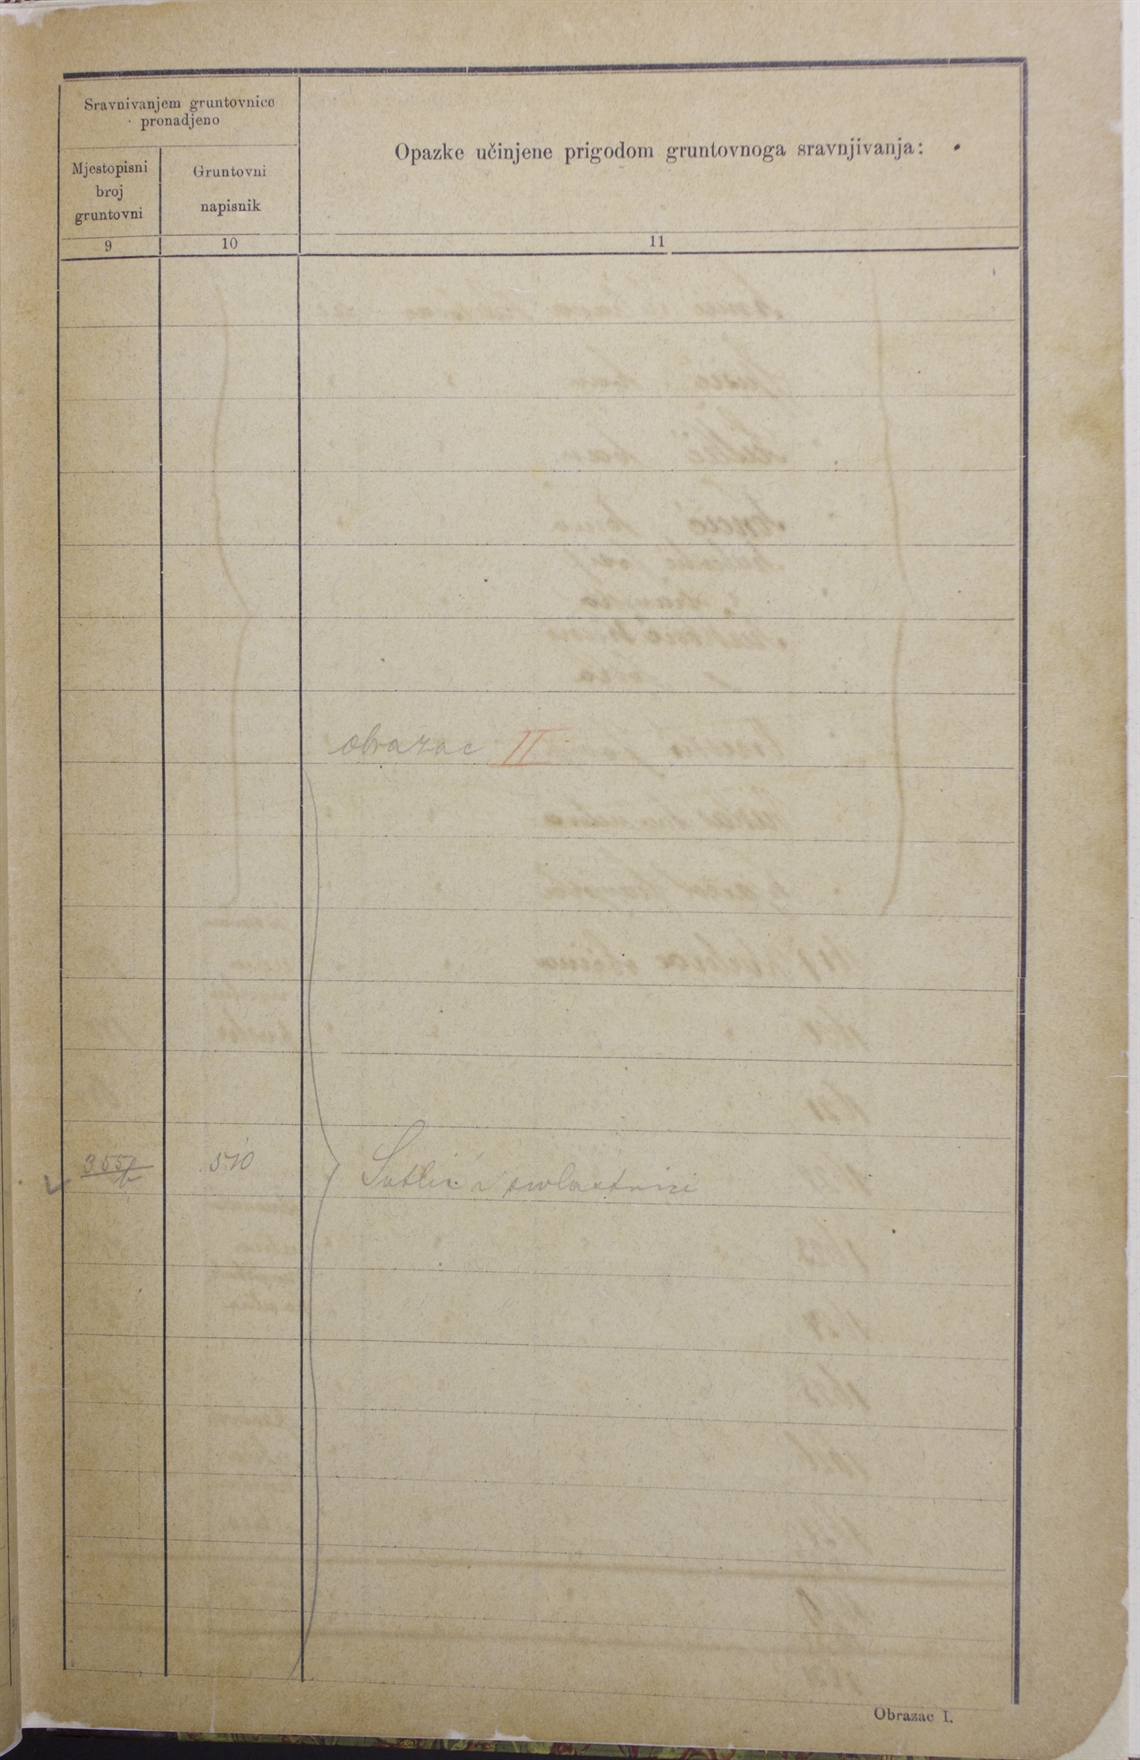 Sravnivanjem gruntovnice
pronadjeno
Mjestopisni
broj
gruntovni
Gruntovni
napisnik
Opazke učinjene prigodom gruntovnoga sravnjivanja:
9
10
11
obrazac II
510
i suvlastnici
Obrazac I.